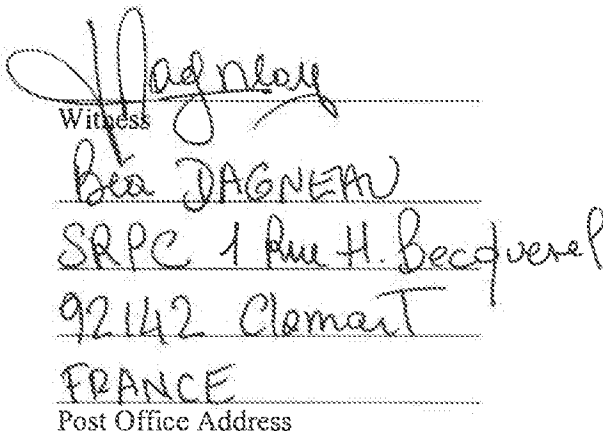 Witness
Béa DAGNEAU
SRPC 1 Rue H. Becquerel
92142 Clamart
FRANCE
Post Office Address